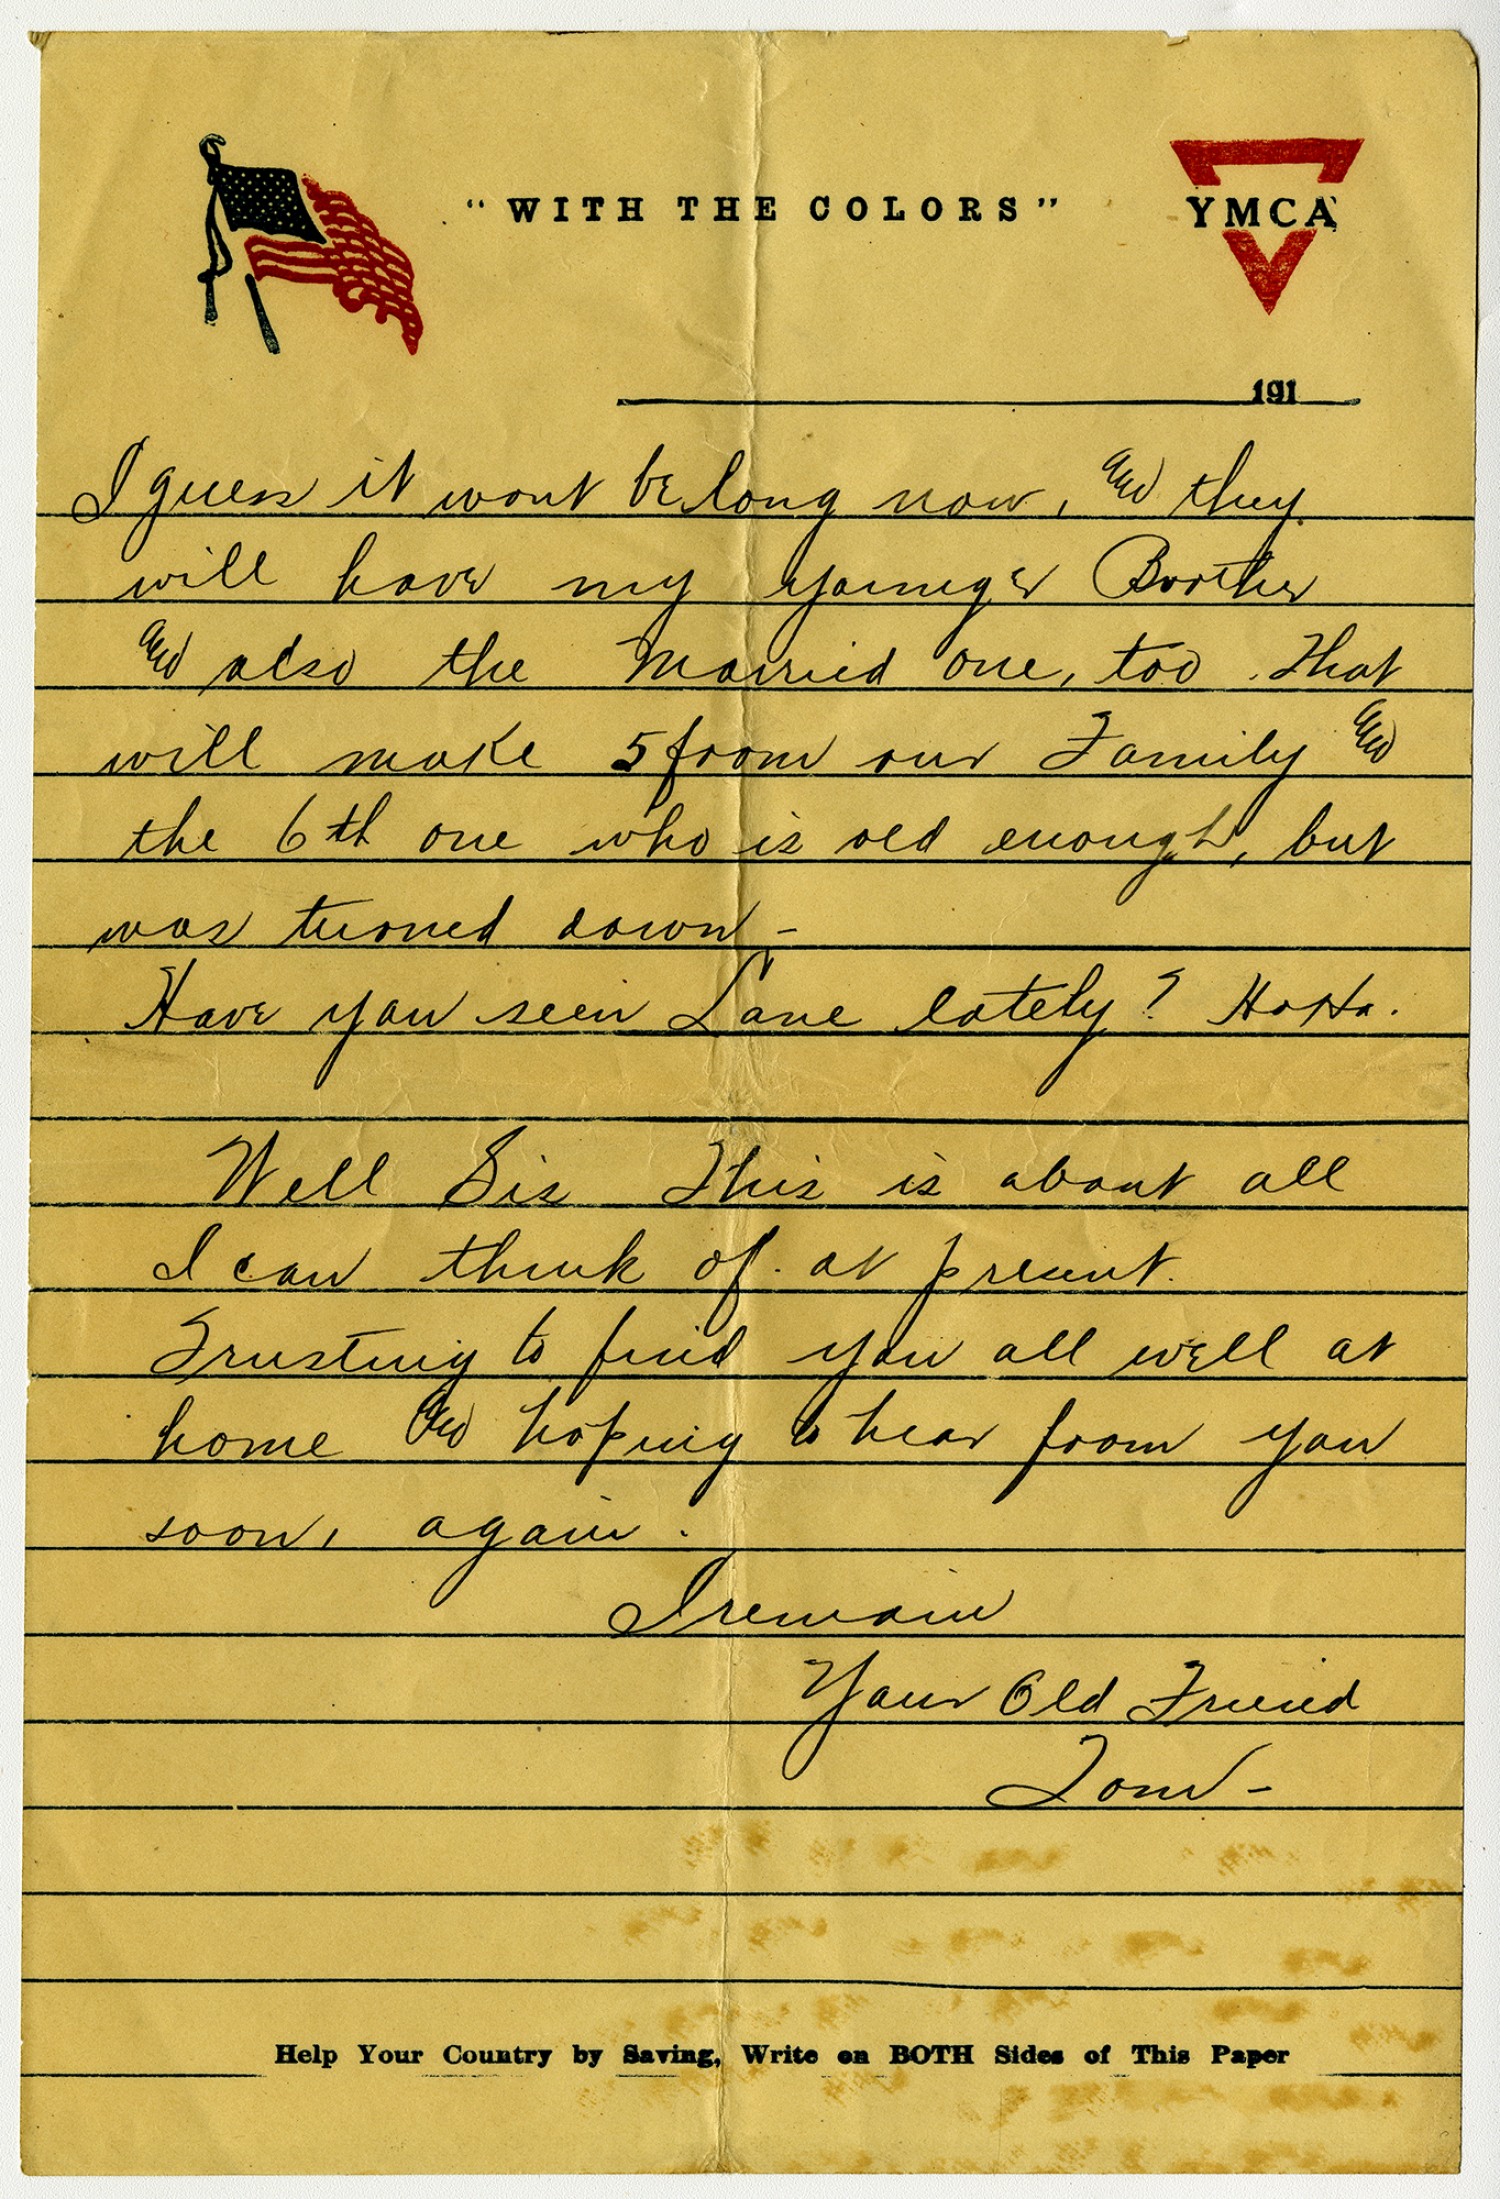 "WITH THE COLORS"
YMCA
191
I guess it wont be long now, and they
will have my younger Brother
and also the Married one, too. That
will make 5 from our Family and
the 6th one who is old enough, but
was turned down -
Have you seen Lane lately? HaHa.
Well Sis This is about all
I can think of at present.
Trusting to find you all well at
home and hoping to hear from you
soon, again.
I remain
Your Old Friend
Tom -
Help Your Country by Saving, Write on BOTH Sides of This Paper